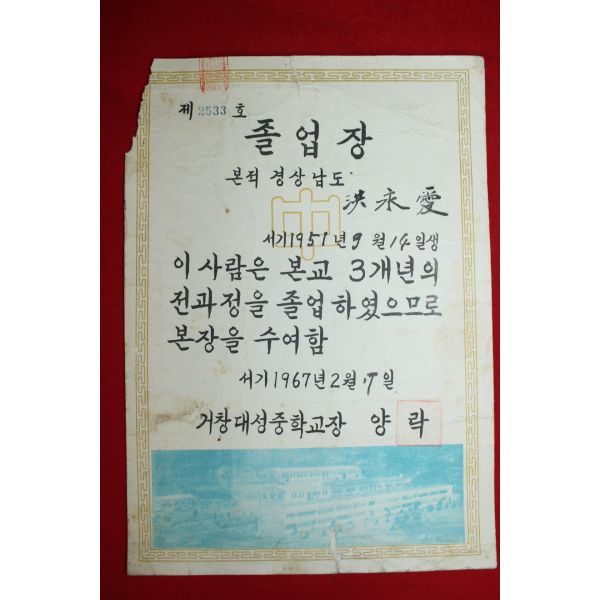 제 2533 호
졸업장
본적 경상남도
洪永愛
서기1951년 9월 14일생
이 사람은 본교 3개년의
전과정을 졸업하였으므로
본장을 수여함
서기1967년2월 17일
거창대성중학교장 양 락
中